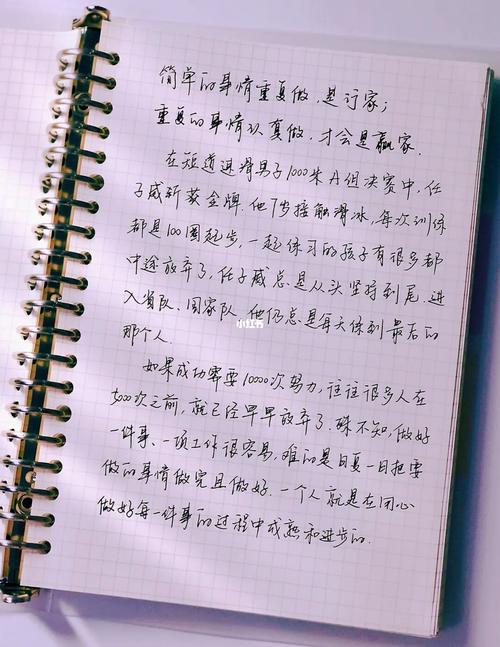 简单的事情重复做，是行家；
重复的事情认真做，才会是赢家．
在短道速滑男子1000米A组决赛中，任
子威斩获金牌．他7岁接触滑冰，每次训练
都是100圈起步，一起练习的孩子有很多都
中途放弃了，任子威总是从头坚持到尾．进
入省队、国家队，他仍总是每天练到最后的
那个人．
小红书
如果成功需要10000次努力，往往很多人在
5000次之前，就已经早早放弃了．殊不知，做好
一件事、一项工作很容易，难的是日复一日把要
做的事情做完且做好．一个人就是在用心
做好每一件事的过程中成熟和进步的．